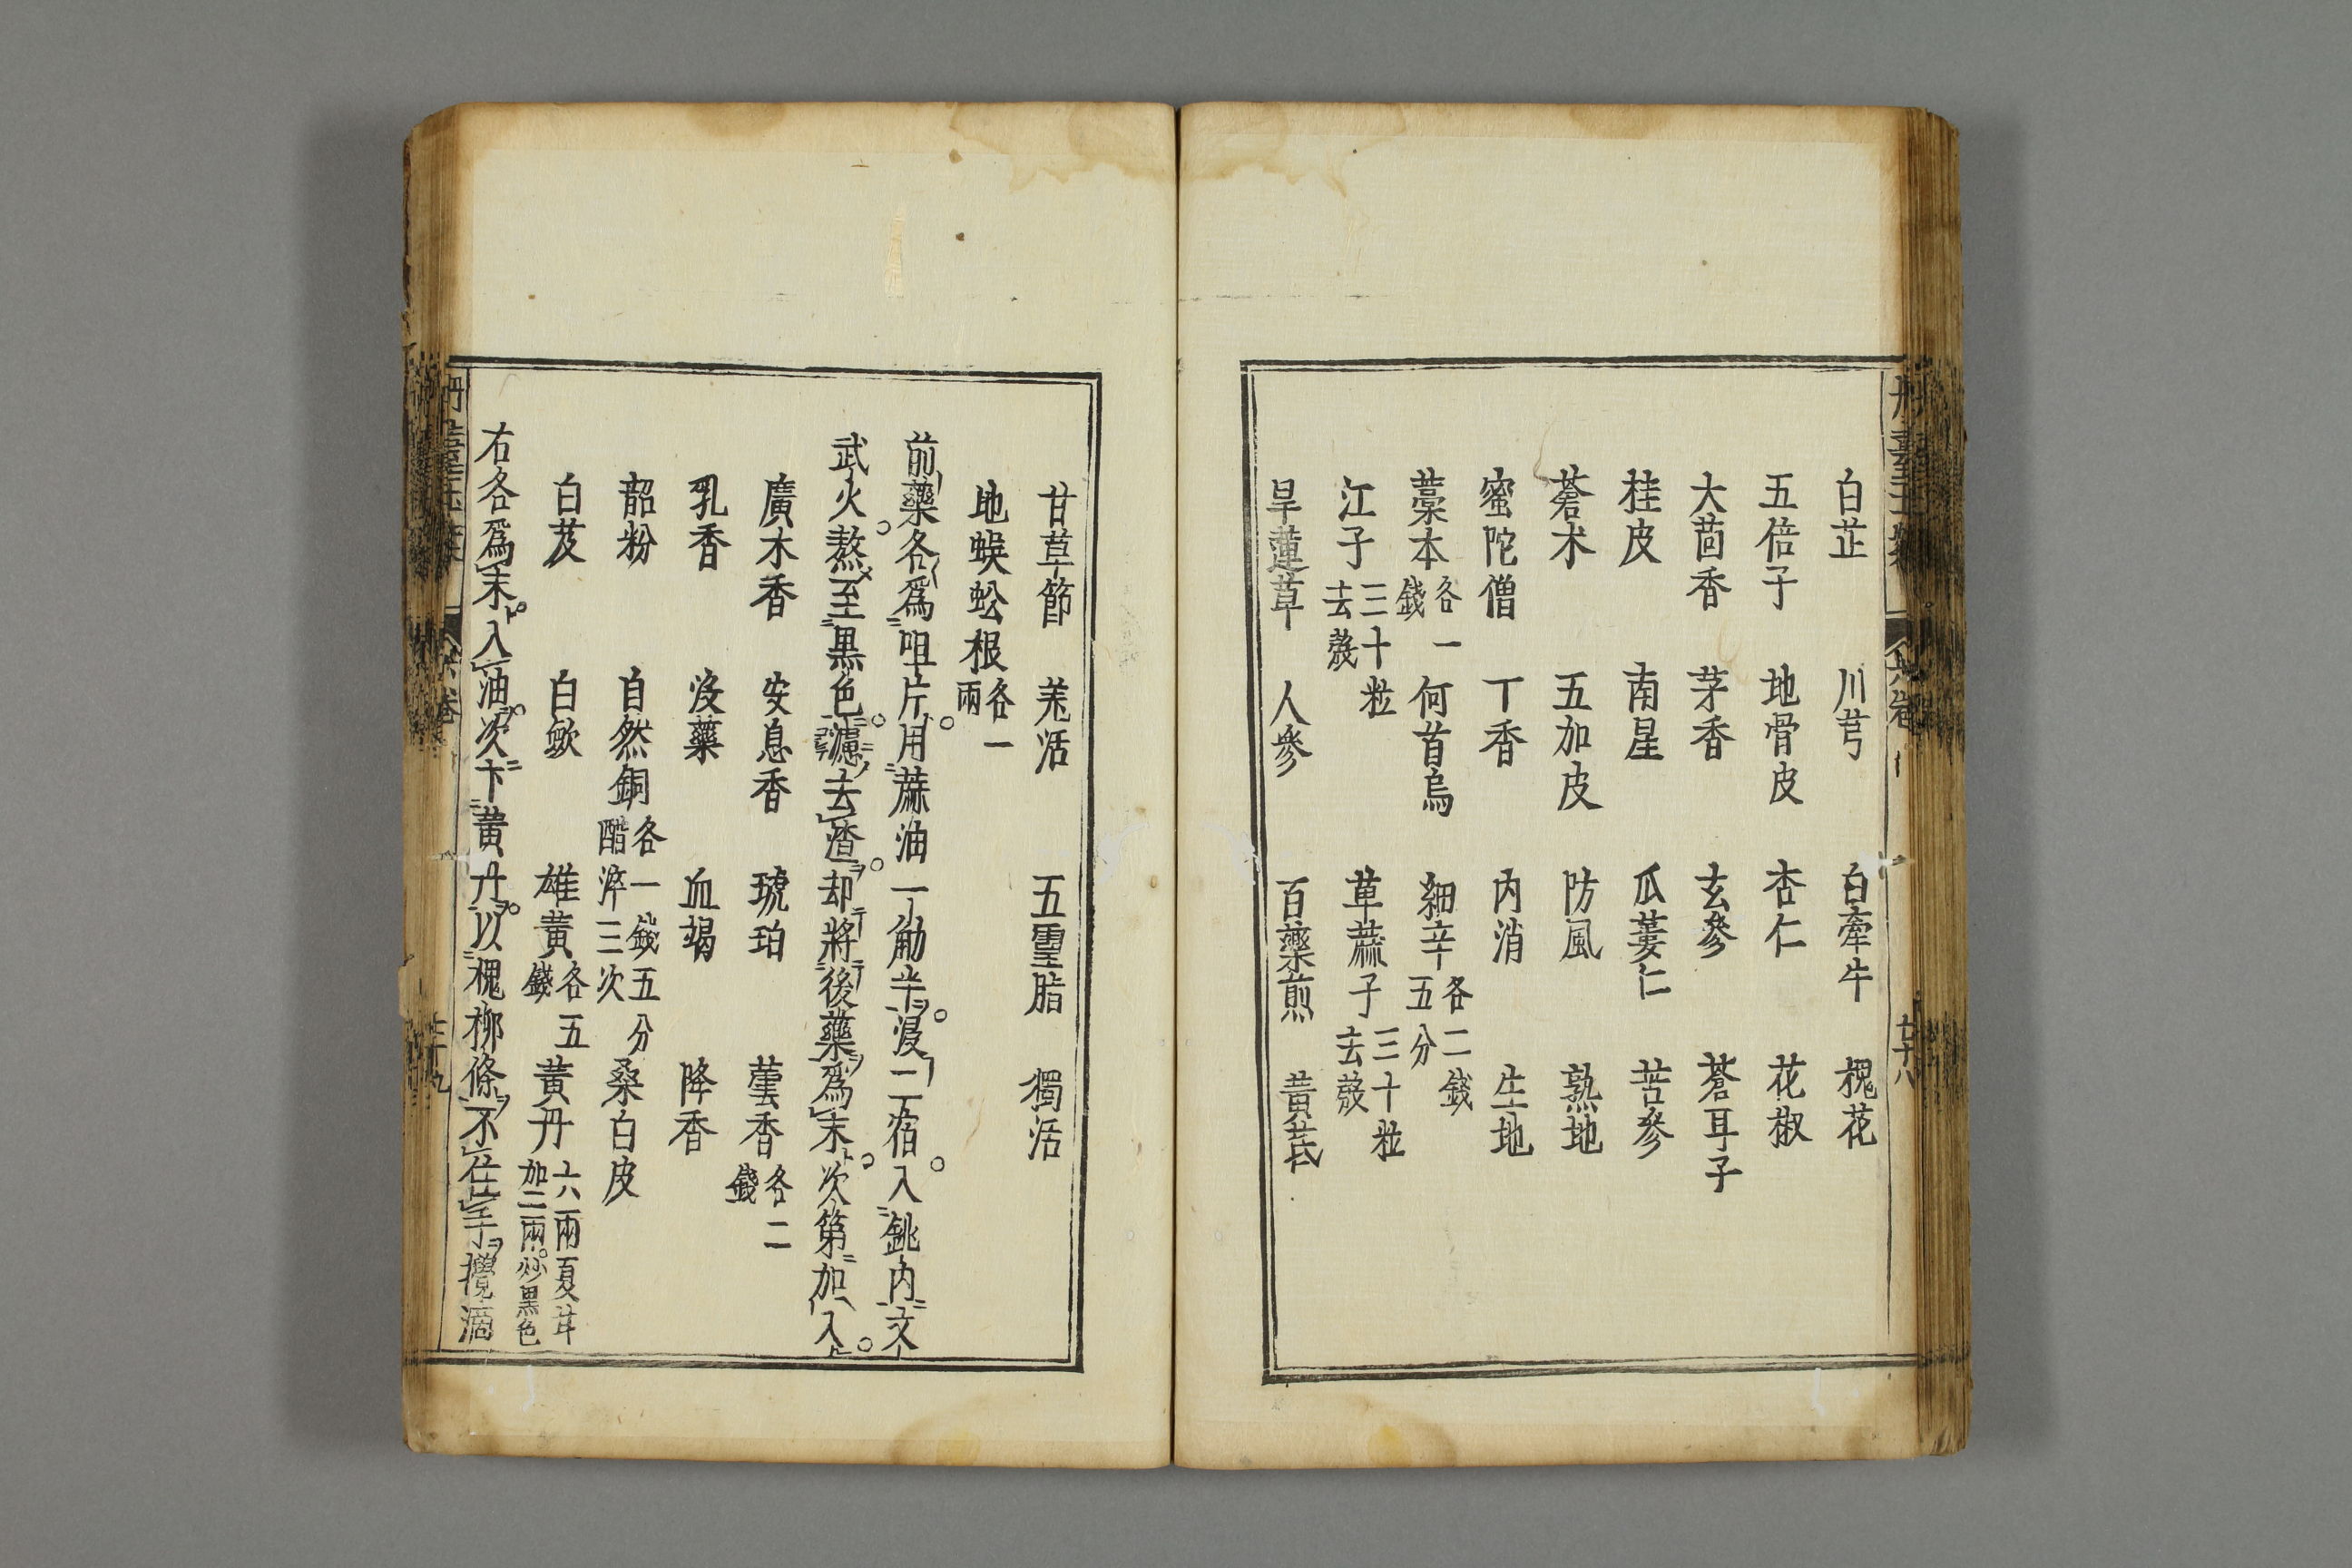 白芷　川芎　白牽牛　槐花
五倍子　地骨皮　杏仁　花椒
大茴香　茅香　玄參　蒼耳子
桂皮　南星　瓜蔞仁　苦參
蒼术　五加皮　防風　熟地
蜜陀僧　丁香　内消　生地
藁本各一錢　何首烏　細辛各二錢五分
江子三十粒去殼　草蔴子三十粒去殼
旱蓮草　人參　百藥煎　黄芪
七十八
甘草節　羗活　五靈脂　獨活
地蜈蚣根各一兩
前藥各爲咀片用蔴油一觔半浸二宿入銚内文
武火熬至黒色濾去渣却將後藥爲末次第加入
廣木香　安息香　琥珀　蕓香各二錢
乳香　没藥　血竭　降香
韶粉　自然銅各一錢五分醋淬三次　桑白皮
白芨　白蘞　雄黄各五錢　黄丹六兩夏月加二兩炒黒色
右各爲末入油次下黄丹以槐柳條不住手攪滴